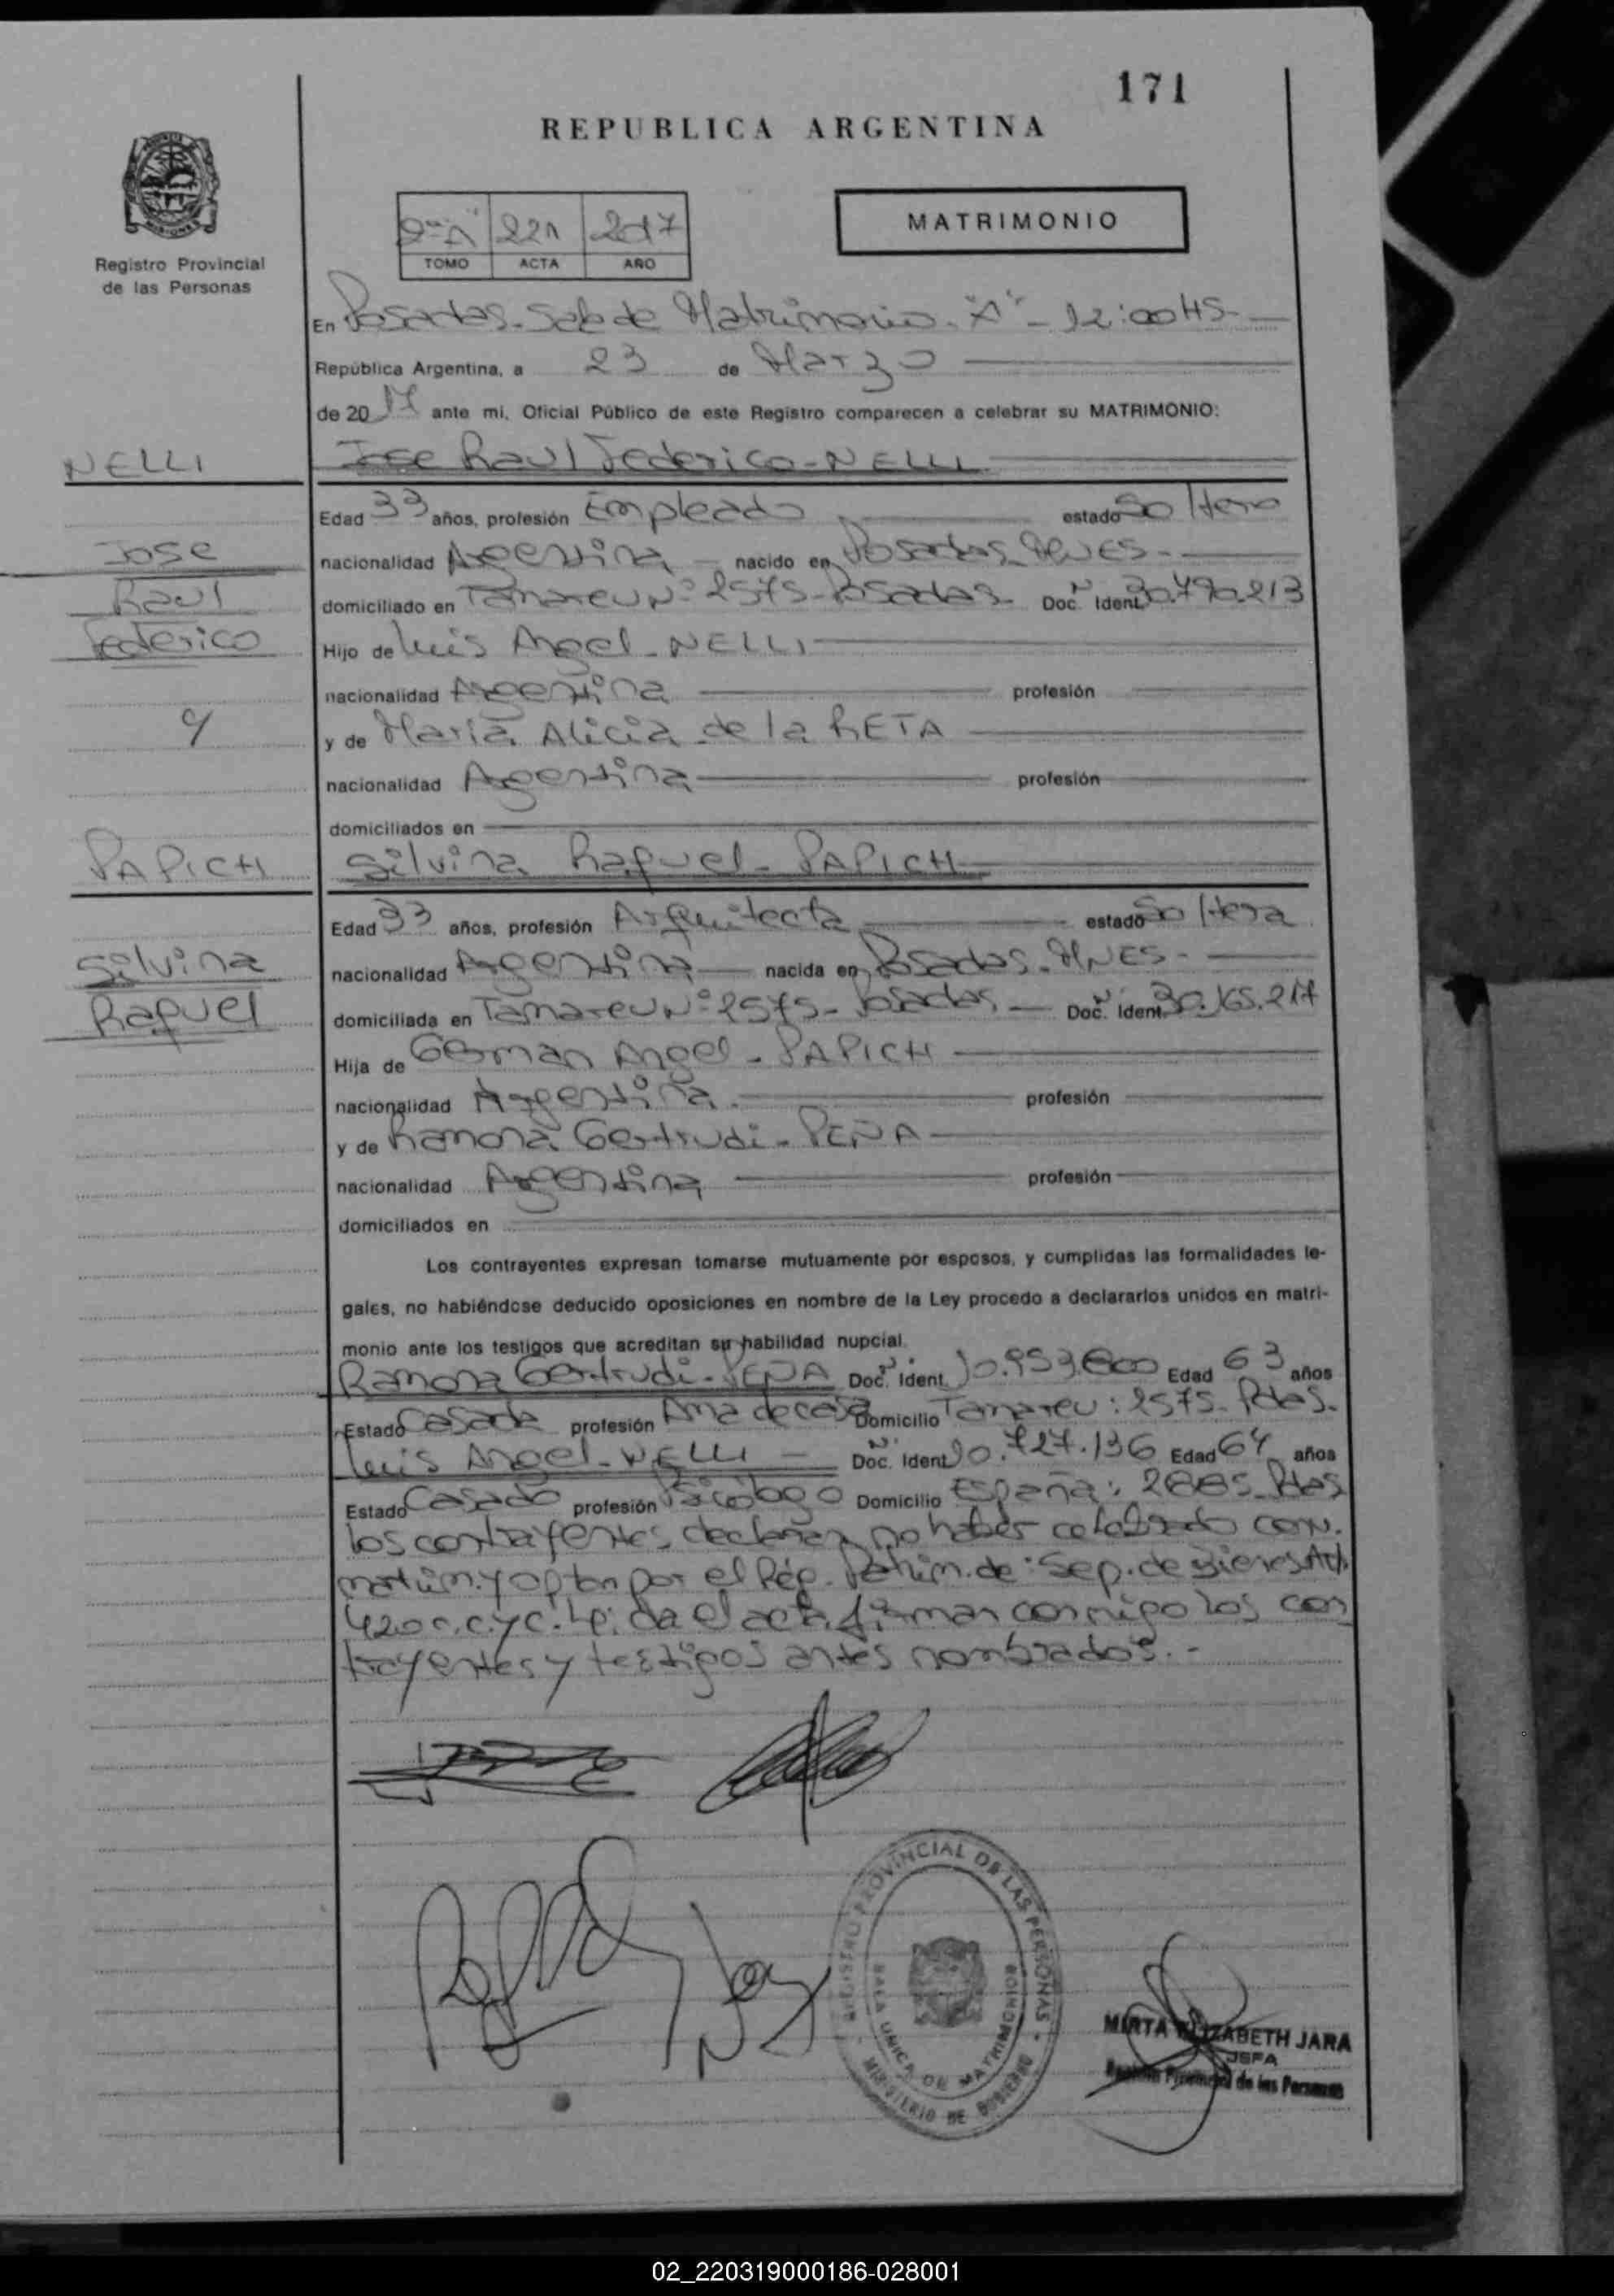 171
REPUBLICA ARGENTINA
Registro Provincial
de las Personas
2º "A" 221 2017
TOMO ACTA AÑO
MATRIMONIO
En Posadas - Sala de Matrimonio "A" - 12:00 HS -
República Argentina, a 23 de Marzo
de 20 17 ante mi, Oficial Público de este Registro comparecen a celebrar su MATRIMONIO:
NELLI
Jose Raul Federico - NELLI
Edad 33 años, profesión Empleado estado Soltero
Jose
nacionalidad Argentina - nacido en Posadas - MNES -
Raul
domiciliado en Tamareu Nº 2575 - Posadas - Doc. Nº Ident. 30.790.213
Federico
Hijo de Luis Angel - NELLI
nacionalidad Argentina profesión
y
y de Maria Alicia de la RETA
nacionalidad Argentina profesión
domiciliados en
PAPICH
Silvina Raquel - PAPICH
Edad 33 años, profesión Arquitecta estado Soltera
Silvina
nacionalidad Argentina - nacida en Posadas - MNES -
Raquel
domiciliada en Tamareu Nº 2575 - Posadas - Doc. Nº Ident. 30.165.217
Hija de German Angel - PAPICH
nacionalidad Argentina - profesión
y de Ramona Gertrudi - PEÑA
nacionalidad Argentina profesión
domiciliados en
Los contrayentes expresan tomarse mutuamente por esposos, y cumplidas las formalidades le-
gales, no habiéndose deducido oposiciones en nombre de la Ley procedo a declararlos unidos en matri-
monio ante los testigos que acreditan su habilidad nupcial.
Ramona Gertrudi - PEÑA Doc. Nº Ident. 10.953.600 Edad 63 años
Estado Casada profesión Ama de casa Domicilio Tamareu: 2575 - Pdas.
Luis Angel - NELLI - Doc. Nº Ident. 10.727.136 Edad 64 años
Estado Casado profesión Psicologo Domicilio España: 2885 - Pdas
los contrayentes declaran no haber celebrado conv.
matrim. y optan por el Rég. Patrim. de: Sep. de Bienes Art.
420 c.c.y c. Leida el acta firman conmigo los con
trayentes y testigos antes nombrados. -
REGISTRO PROVINCIAL DE LAS PERSONAS
SALA UNICA DE MATRIMONIOS
MINISTERIO DE GOBIERNO
MIRTA ELIZABETH JARA
JEFA
Registro Provincial de las Personas
02_220319000186-028001